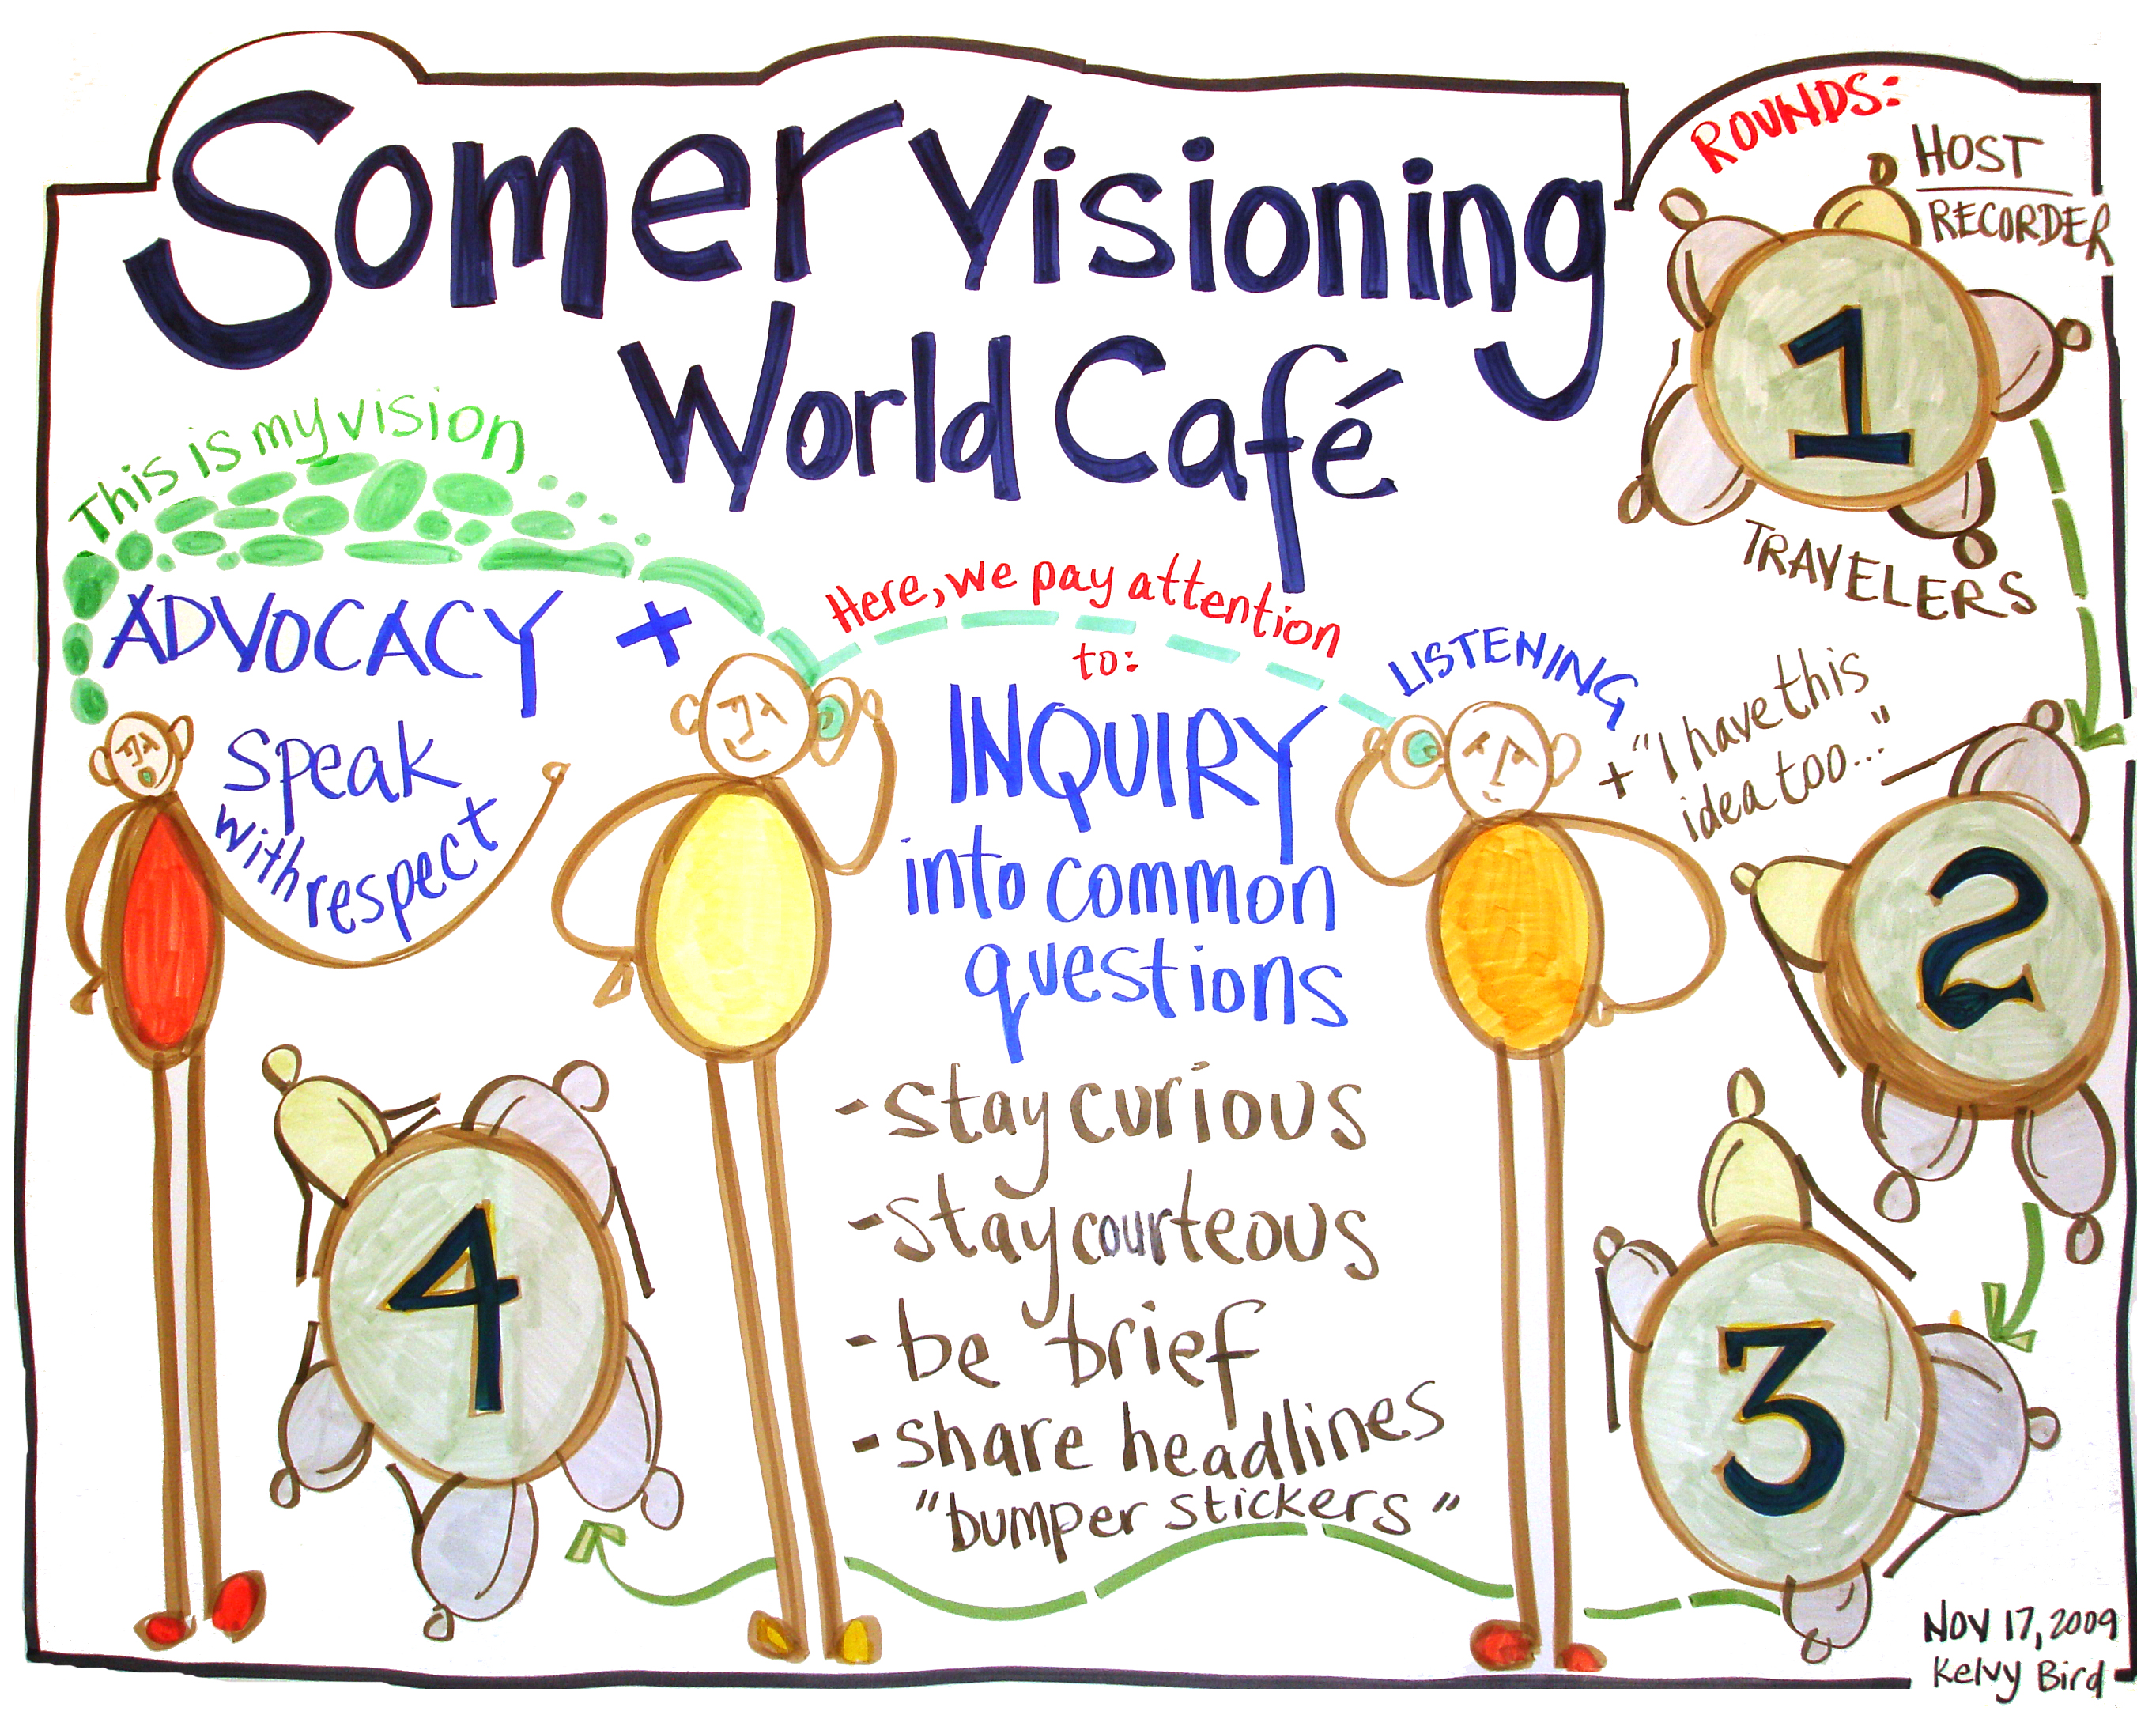 SomerVisioning
World Café
ROUNDS:
HOST
RECORDER
1
TRAVELERS
This is my vision
ADVOCACY +
Speak
with respect
Here, we pay attention
to:
INQUIRY
into common
questions
- stay curious
- stay courteous
- be brief
- share headlines
"bumper stickers"
LISTENING
+ "I have this
idea too..."
2
3
4
Nov 17, 2009
Kelvy Bird